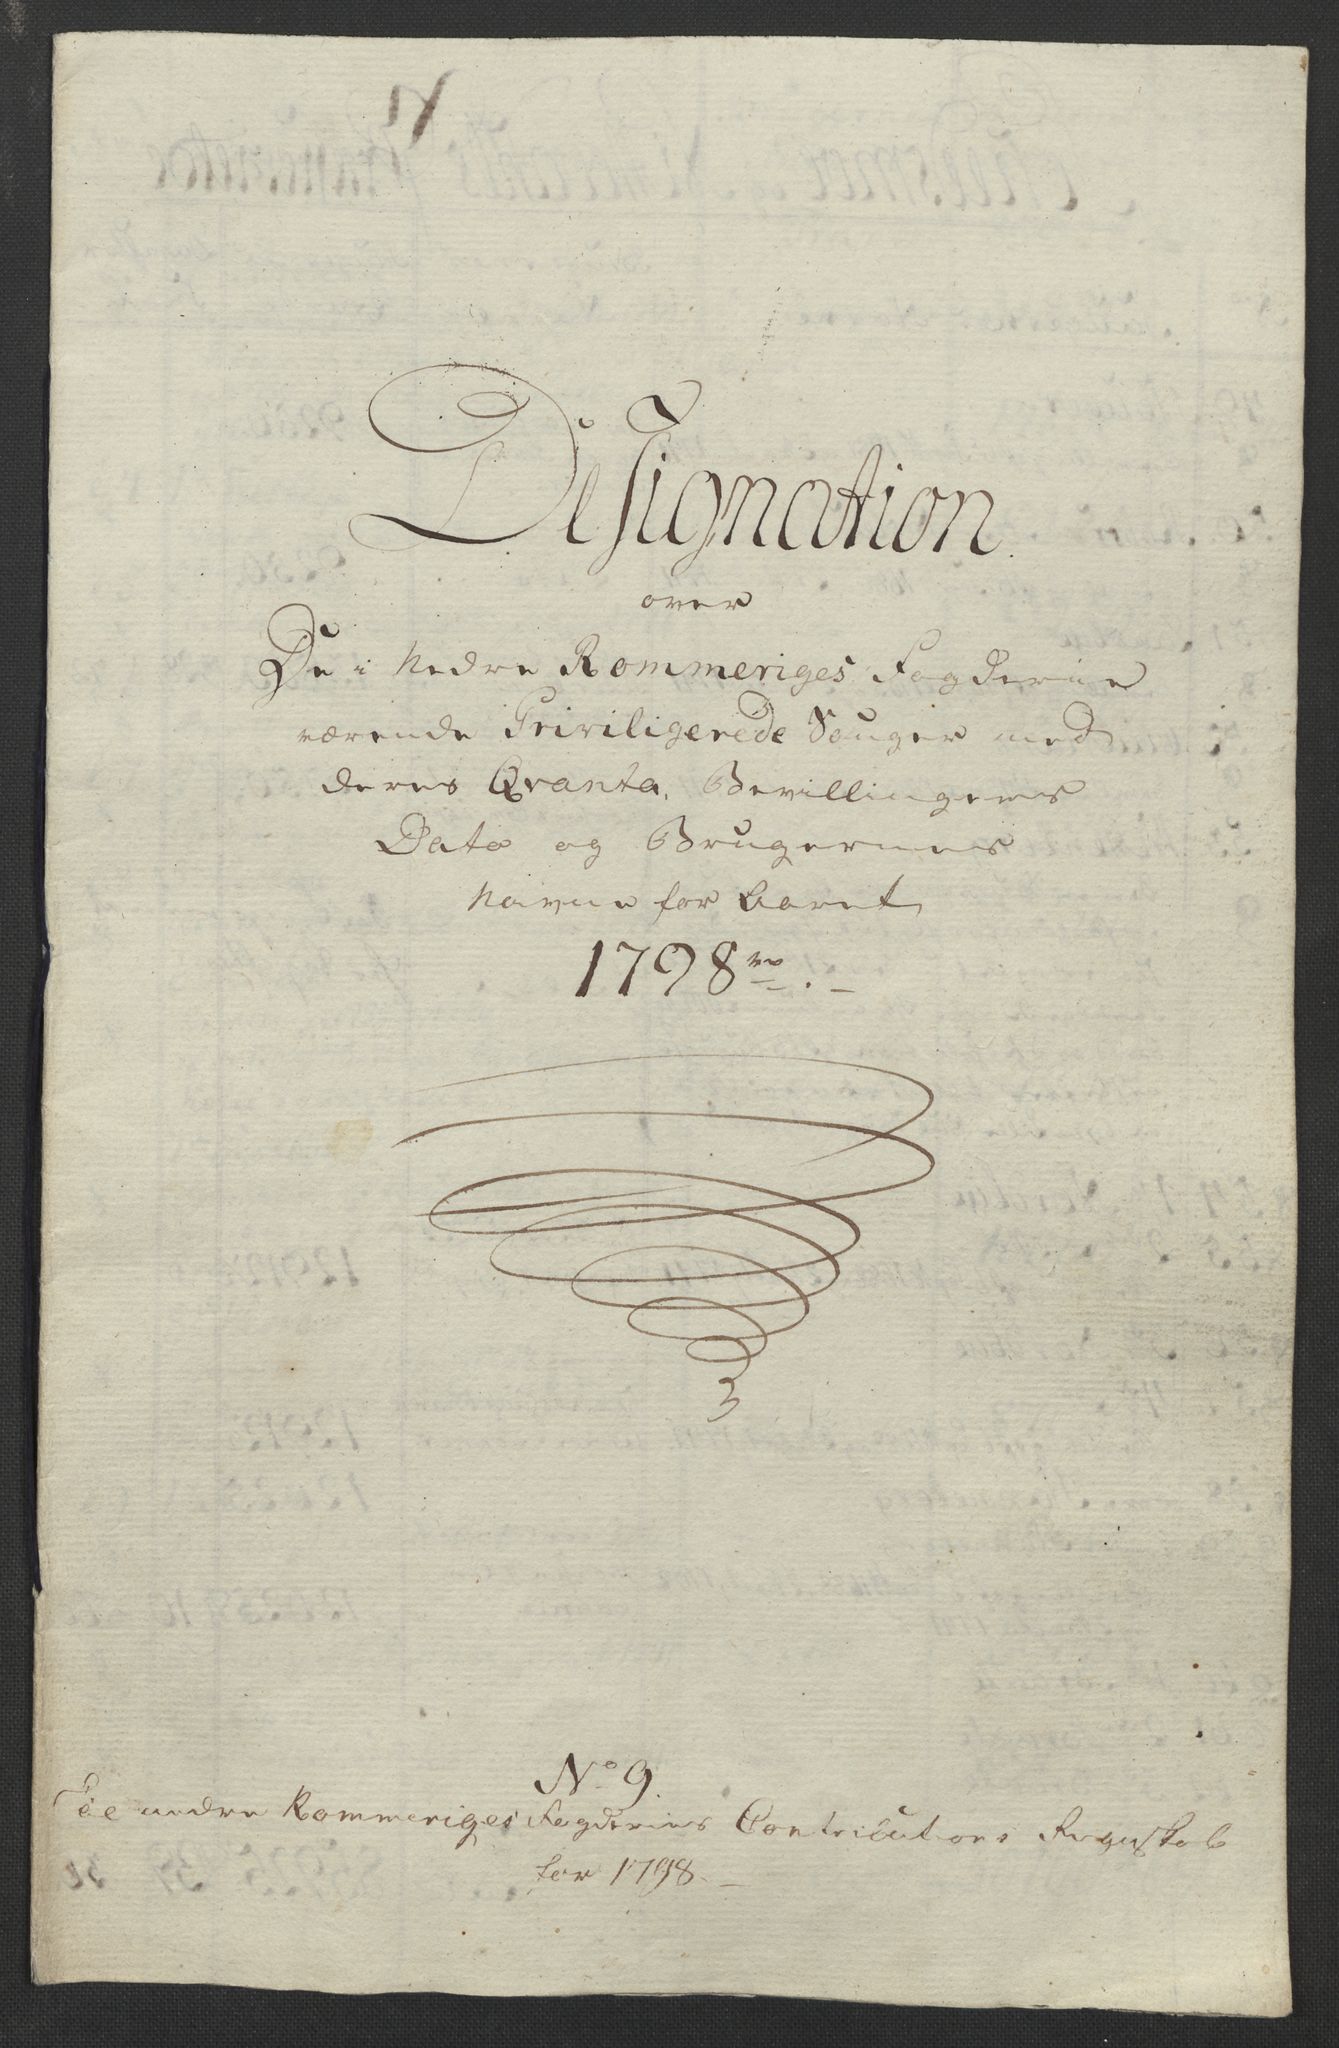 Designation
over
De i Nedre Rommeriges Fogderie
værende Priviligerede Sauger med
deres Qvanta, Bevillingens
Dato og Brugernes
Navne for Aaret
1798ve.
No 9.
Til nedre Rommeriges Fogderies Contributions Regnskab
for 1798.